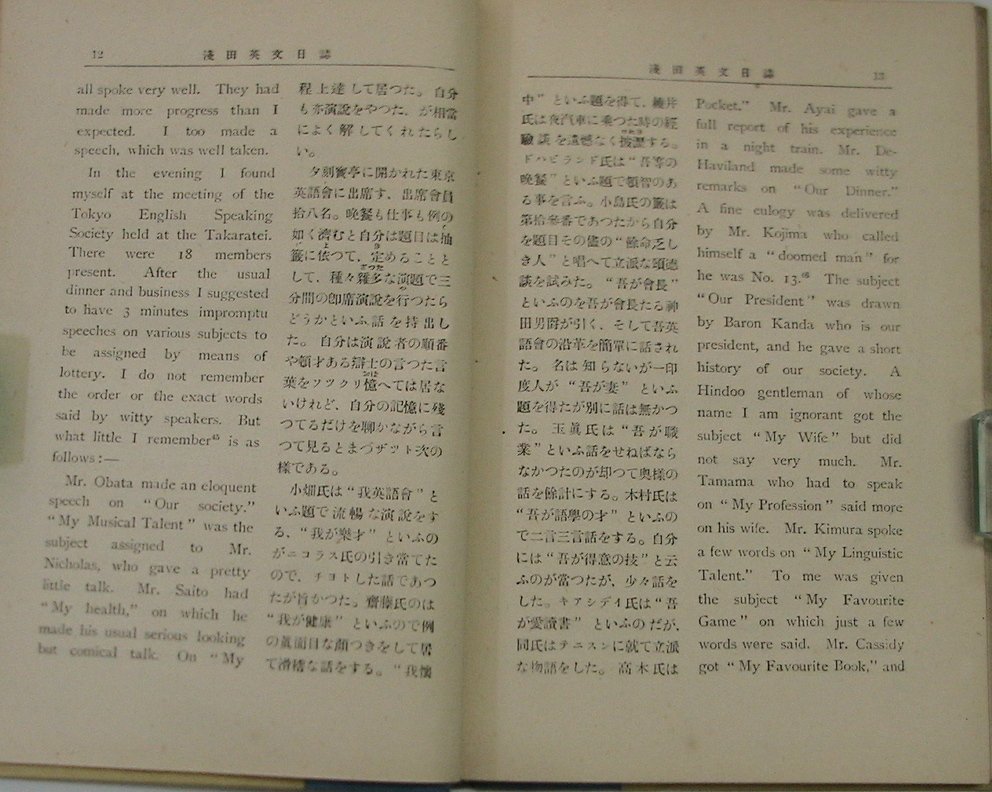 12
淺田英文日誌
all spoke very well. They had
made more progress than I
expected. I too made a
speech, which was well taken.
In the evening I found
myself at the meeting of the
Tokyo English Speaking
Society held at the Takaratei.
There were 18 members
present. After the usual
dinner and business I suggested
to have 3 minutes impromptu
speeches on various subjects to
be assigned by means of
lottery. I do not remember
the order or the exact words
said by witty speakers. But
what little I remember⁴⁵ is as
follows:—
Mr. Obata made an eloquent
speech on "Our society."
"My Musical Talent" was the
subject assigned to Mr.
Nicholas, who gave a pretty
little talk. Mr. Saito had
"My health," on which he
made his usual serious looking
but comical talk. On "My
程上達して居つた。自分
も亦演說をやつた、が相當
によく解してくれたらし
い。
夕刻寳亭に開かれた東京
英語會に出席す、出席會員
拾八名。晩餐も仕事も例の
如く濟むと自分は題目は抽
籤に依つて、定めることと
して、種々雜多な演題で三
分間の卽席演說を行つたら
どうかといふ話を持出し
た。自分は演說者の順番
や頓才ある辯士の言つた言
葉をソツクリ憶へては居な
いけれど、自分の記憶に殘
つてるだけを聊かながら言
つて見るとまづザット次の
樣である。
小畑氏は"我英語會"と
いふ題で流暢な演說をす
る、"我が樂才"といふの
がニコラス氏の引き當てた
ので、チヨトした話であつ
たが旨かつた。齋藤氏のは
"我が健康"といふので例
の眞面目な顏つきをして居
て滑稽な話をする。"我懷
淺田英文日誌
13
中"といふ題を得て、綾井
氏は夜汽車に乘つた時の經
驗談を遺憾なく披瀝する。
ドハビランド氏は"吾等の
晩餐"といふ題で頓智のあ
る事を言ふ。小島氏の籤は
第拾參番であつたから自分
を題目その儘の"餘命乏し
き人"と唱へて立派な頌德
談を試みた。"吾が會長"
といふのを吾が會長たる神
田男爵が引く、そして吾英
語會の沿革を簡單に話され
た。名は知らないが一印
度人が"吾が妻"といふ
題を得たが別に話は無かつ
た。玉眞氏は"吾が職
業"といふ話をせねばなら
なかつたのが却つて奧樣の
話を餘計にする。木村氏は
"吾が語學の才"といふの
で二言三言話をする。自分
には"吾が得意の技"と云
ふのが當つたが、少々話を
した。キアシデイ氏は"吾
が愛讀書"といふのだが、
同氏はテニスンに就て立派
な物語をした。高木氏は
Pocket." Mr. Ayai gave a
full report of his experience
in a night train. Mr. De-
Haviland made some witty
remarks on "Our Dinner."
A fine eulogy was delivered
by Mr. Kojima who called
himself a "doomed man" for
he was No. 13.⁴⁶ The subject
"Our President" was drawn
by Baron Kanda who is our
president, and he gave a short
history of our society. A
Hindoo gentleman of whose
name I am ignorant got the
subject "My Wife" but did
not say very much. Mr.
Tamama who had to speak
on "My Profession" said more
on his wife. Mr. Kimura spoke
a few words on "My Linguistic
Talent." To me was given
the subject "My Favourite
Game" on which just a few
words were said. Mr. Cassidy
got "My Favourite Book," and